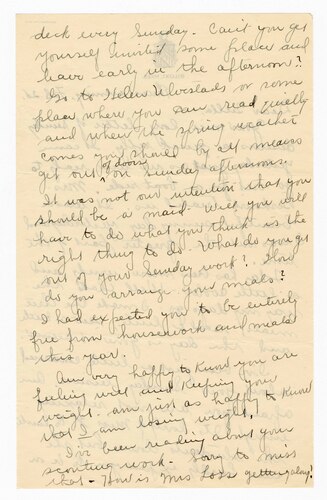 desk every Sunday. Can't you get
yourself invited some place and
leave early in the afternoon?
Go to Helen Ulveslads or some
place where you can read quietly
and when the spring weather
comes you should by all means
get out of doors on Sunday afternoons.
It was not our intention that you
should be a maid. Well you will
have to do what you think is the
right thing to do. What do you get
out of your Sunday work? How
do you arrange your meals?
I had expected you to be entirely
free from housework and meals
this year.
Am very happy to know you are
feeling well and keeping your
weight. am just as happy to know
that I am losing weight!
I've been reading about your
scouting work. Sorry to miss
that - How is Mrs Loss getting along?